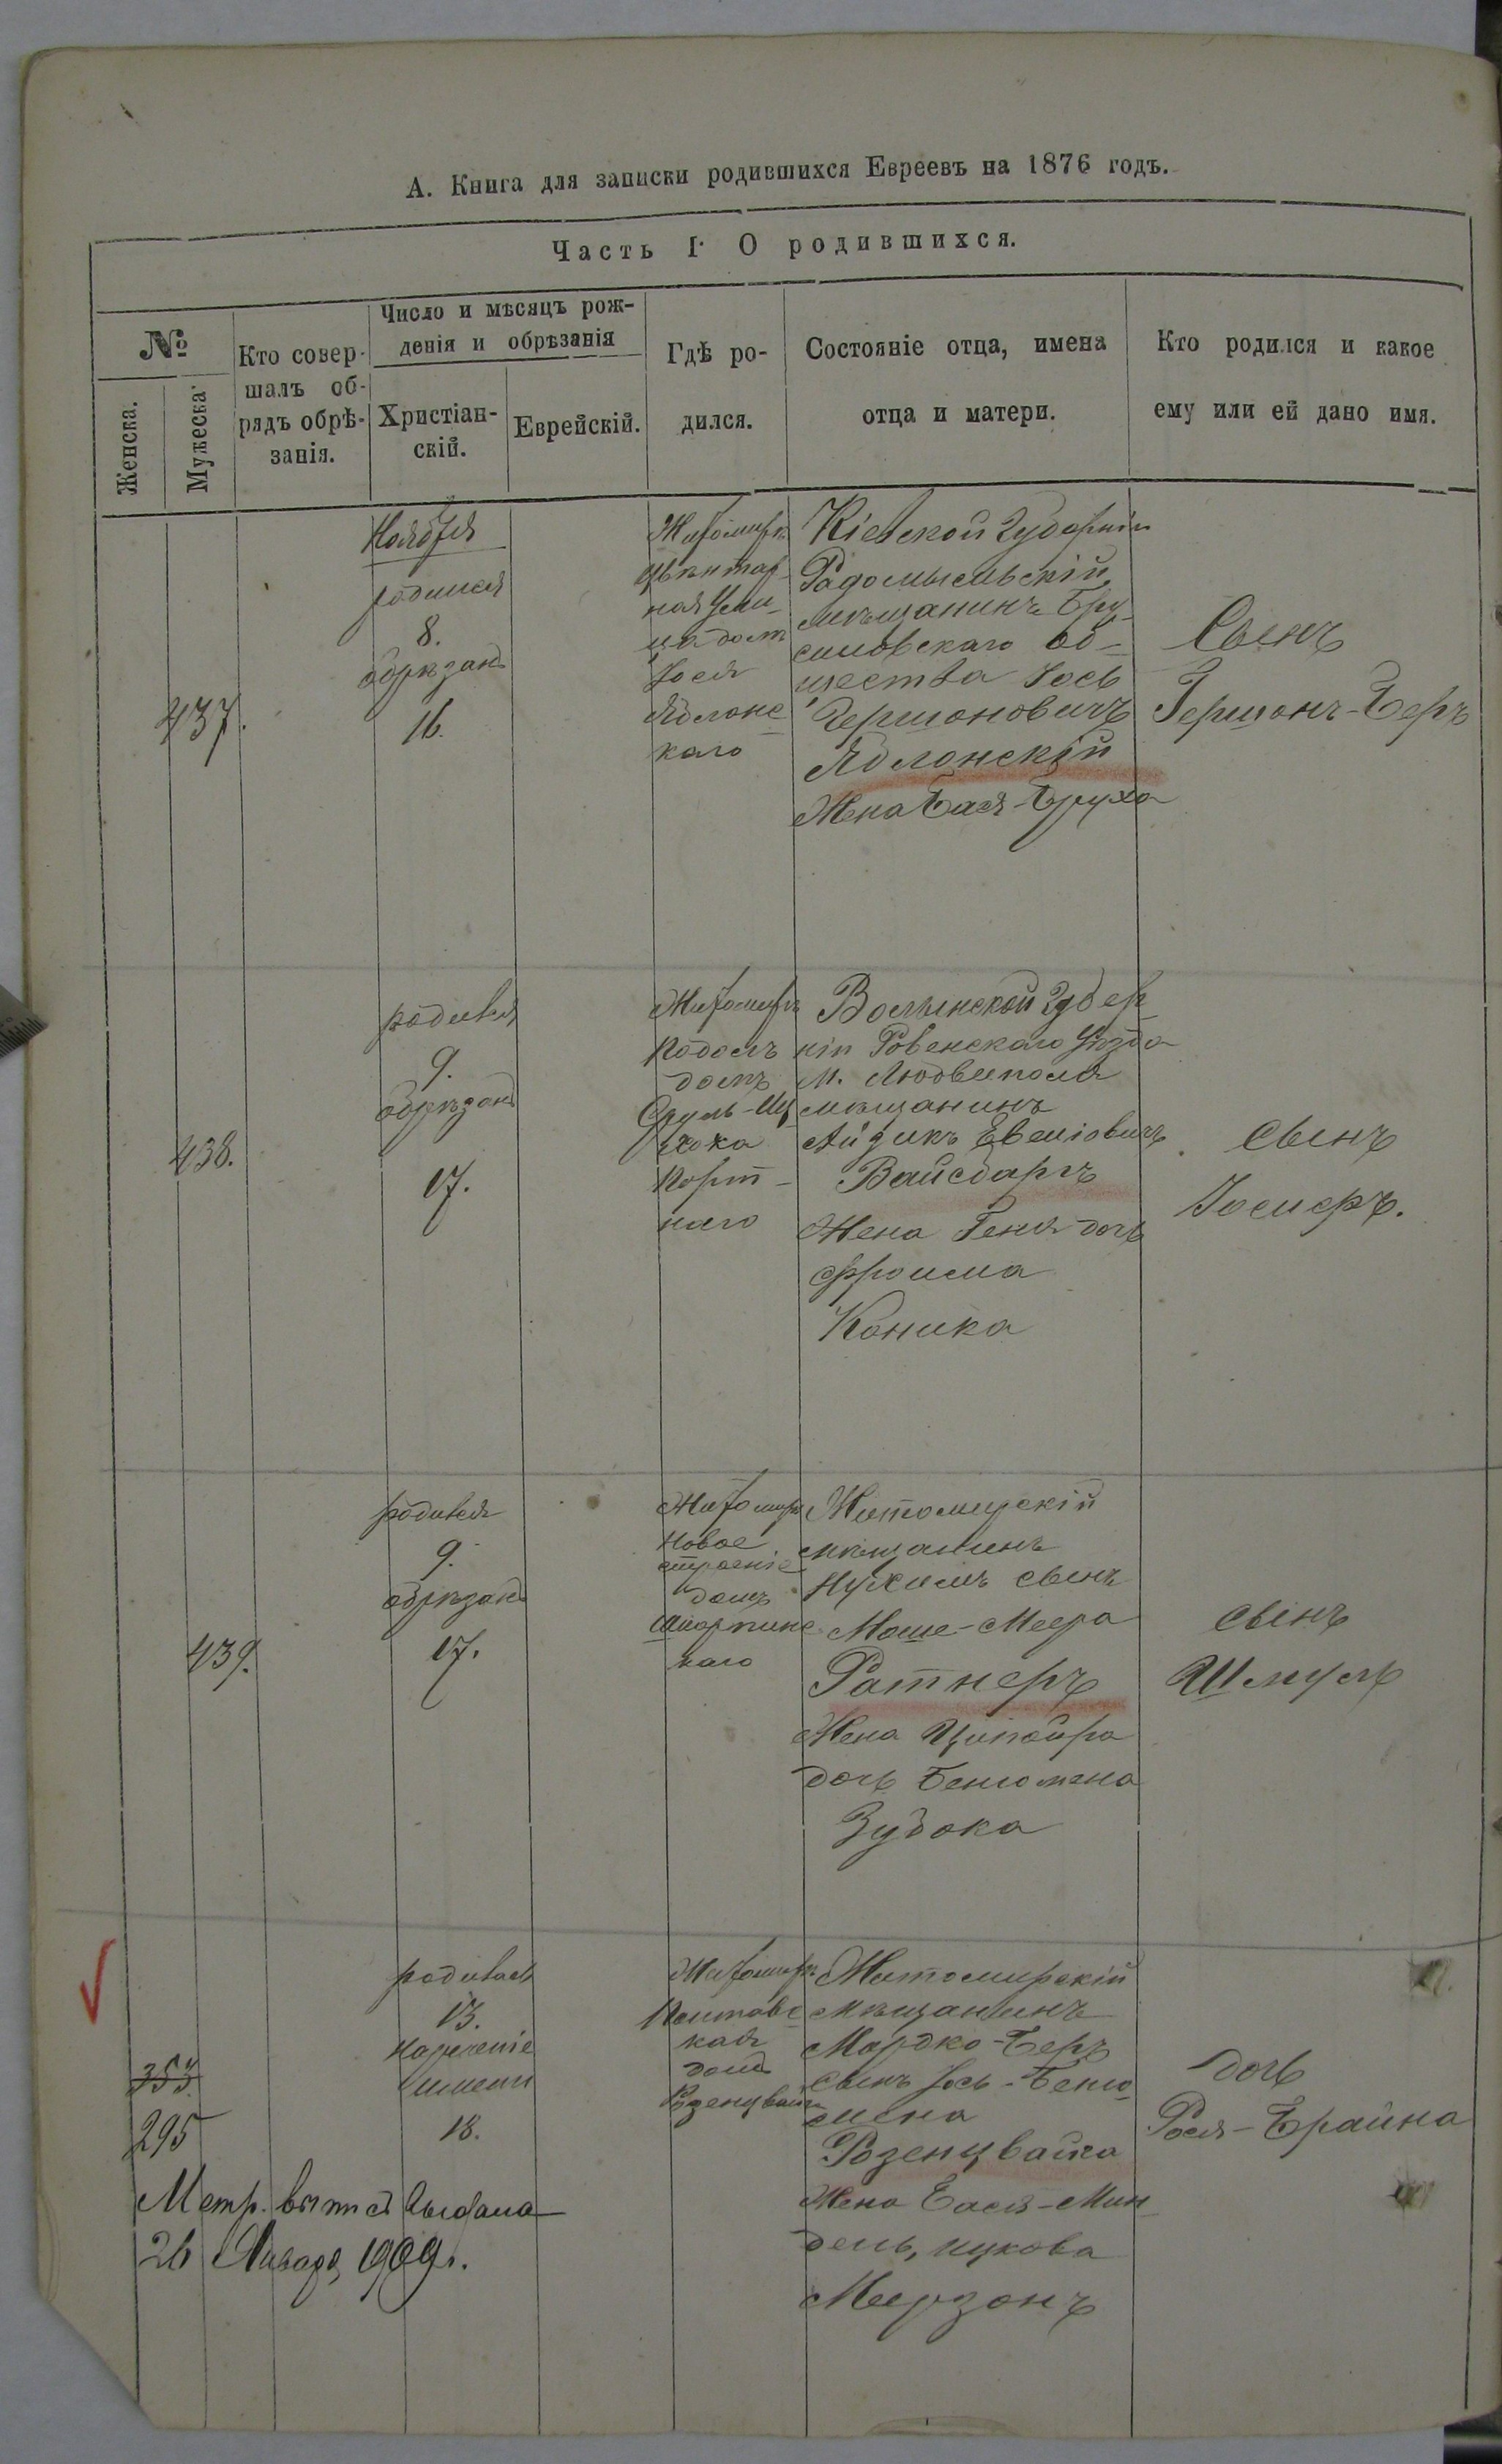 А. Книга для записки родившихся Евреевъ на 1876 годъ.
Часть I. О родившихся.
№
Женска.
Мужеска
Кто совер-
шалъ об-
рядъ обрѣ-
занія.
Число и мѣсяцъ рож-
денія и обрѣзанія
Христіан-
скій.
Еврейскій.
Гдѣ ро-
дился.
Состояніе отца, имена
отца и матери.
Кто родился и какое
ему или ей дано имя.
437.
Ноября
родился
8.
обрѣзанъ
16.
Житомиръ
ная Ули-
ца домъ
Іося
Яблонс
каго
Кіевской Губерніи
Радомысльскій
мѣщанинъ Бру-
силовскаго об-
щества Іось
Гершоновичъ
Яблонскій
Жена Бася-Бруха
Сынъ
Гершонъ-Беръ
438.
родився
9.
обрѣзанъ
17.
Житомиръ
Подолъ
домъ
Порт-
наго
Волынской Губер
ніи Ровенскаго Уѣзда
М. Людвиполя
мѣщанинъ
Айзикъ
Вайсбаргъ
Жена Геня дочь
Эфроима
Коника
сынъ
Іосиеръ.
439.
родився
9.
обрѣзанъ
17.
Житомиръ
Новое
строеніе
домъ
каго
Житомирскій
мѣщанинъ
Нухимъ сынъ
Моше-Меера
Ратнеръ
Жена Ципойра
дочь Бенюмена
Зубока
сынъ
Шмуль
353
295
родилась
13.
Нареченіе
имени
18.
Житомиръ
кая
домъ
Розенцвайга
Житомирскій
мѣщанинъ
Мордко-Беръ
сынъ Іось-Беню
мена
Розенцвайга
Жена Бася-Мин
дель, Нухова
Меерзонъ
дочь
Рося-Брайна
Метр. выпись выдана
26 Января 1909 г.